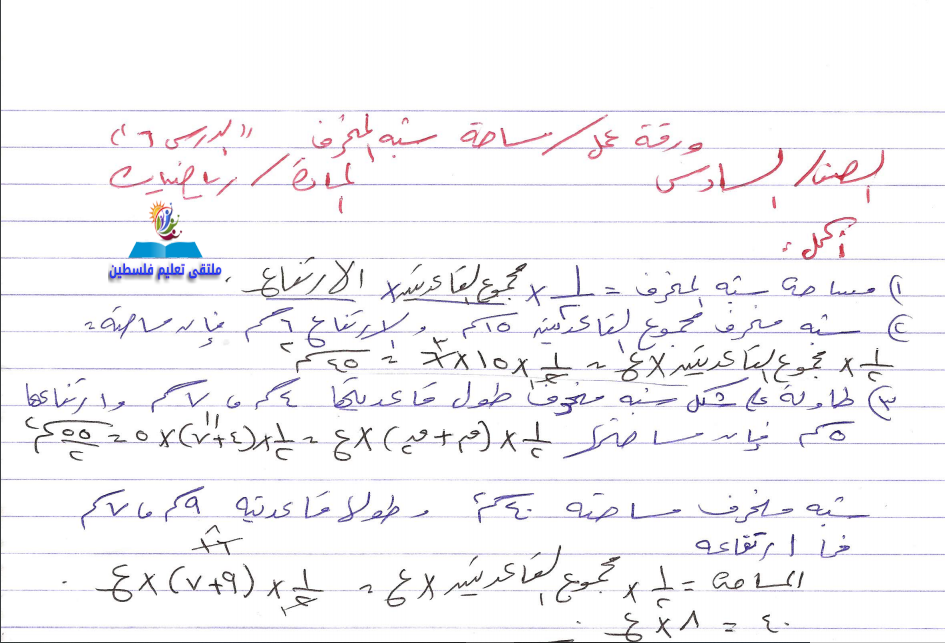 ورقة عمل / مساحة شبه المنحرف "الدرس ٦"
الصف / السادس المادة / رياضيات
أكمل :
ملتقى تعليم فلسطين
١) مساحة شبه المنحرف = ١/٢ × مجموع القاعدتين × الارتفاع .
٢) شبه منحرف مجموع القاعدتين ١٥ كم والارتفاع ٦ كم فإن مساحته =
١/٢ × مجموع القاعدتين × ع = ١/٢ × ١٥ × ٦ ٣ = ٤٥ كم٢
٣) طاولة على شكل شبه منحرف طول قاعدتيها ٤ كم ، ٧ كم وارتفاعها
٥ كم فإن مساحتها ١/٢ × (ق١ + ق٢) × ع = ١/٢ × (٤+٧) ١١ × ٥ = ٥٥/٢ كم٢
شبه منحرف مساحته ٤٠ كم٢ وطولا قاعدتيه ٩ كم ، ٧ كم
فما ارتفاعه
المساحة = ١/٢ × مجموع القاعدتين × ع = ١/٢ × (٩+٧) ١٦ ٨ × ع
٤٠ = ٨ × ع .